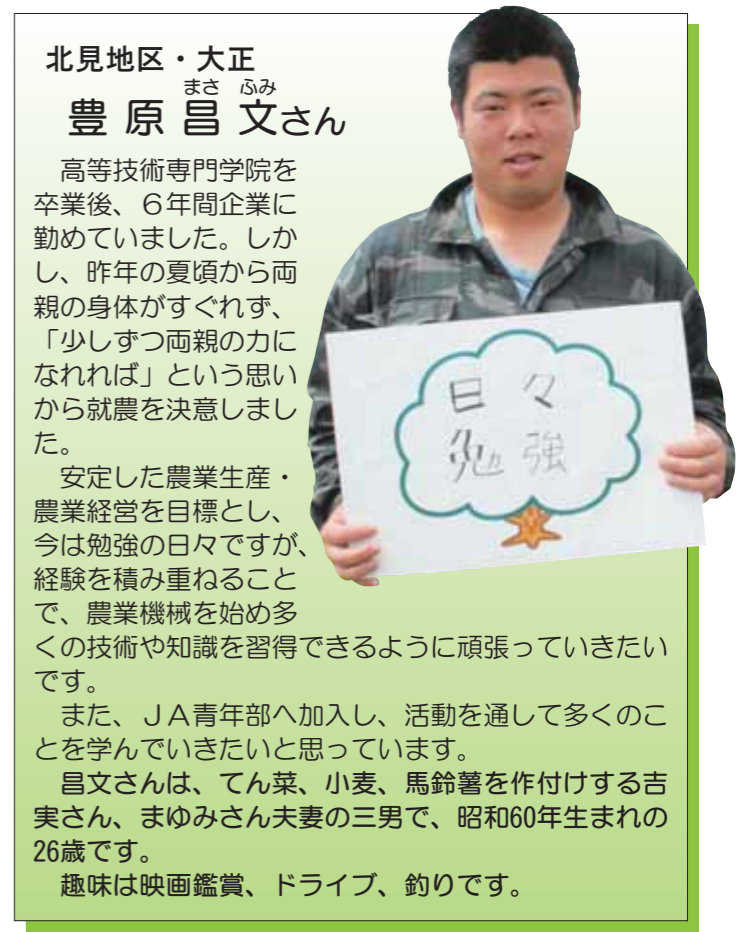 北見地区・大正
まさ ふみ
豊原昌文さん
高等技術専門学院を
卒業後、６年間企業に
勤めていました。しか
し、昨年の夏頃から両
親の身体がすぐれず、
「少しずつ両親の力に
なれれば」という思い
から就農を決意しまし
た。
安定した農業生産・
農業経営を目標とし、
今は勉強の日々ですが、
経験を積み重ねること
で、農業機械を始め多
くの技術や知識を習得できるように頑張っていきたい
です。
また、ＪＡ青年部へ加入し、活動を通して多くのこ
とを学んでいきたいと思っています。
昌文さんは、てん菜、小麦、馬鈴薯を作付けする吉
実さん、まゆみさん夫妻の三男で、昭和60年生まれの
26歳です。
趣味は映画鑑賞、ドライブ、釣りです。
日々
勉強